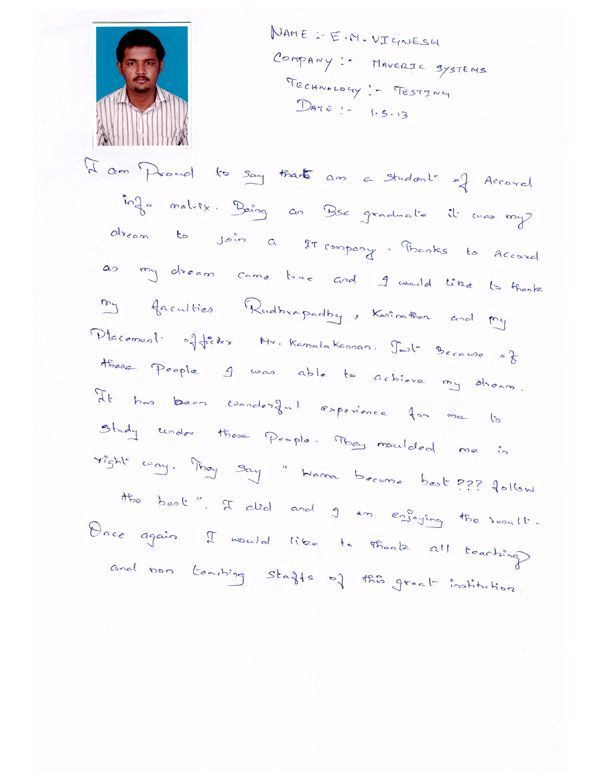 NAME :- E.M. VIGNESH
COMPANY :- MAVERIC SYSTEMS
TECHNOLOGY :- TESTING
DATE :- 1.5.13
I am Proud to say that am a student of Accord
info matrix. Being an Bsc graduate it was my
dream to join a IT company. Thanks to Accord
as my dream came true and I would like to thank
my faculties Rudhrapadhy, and my
Placement officer Mr. Kamalakannan. Just Because of
these People I was able to achieve my dream.
It has been wonderful experience for me to
study under these People. They moulded me in
right way. They say " Wanna become best??? follow
the best". I did and I am enjoying the result.
Once again I would like to thank all teaching
and non teaching staffs of this great institution.